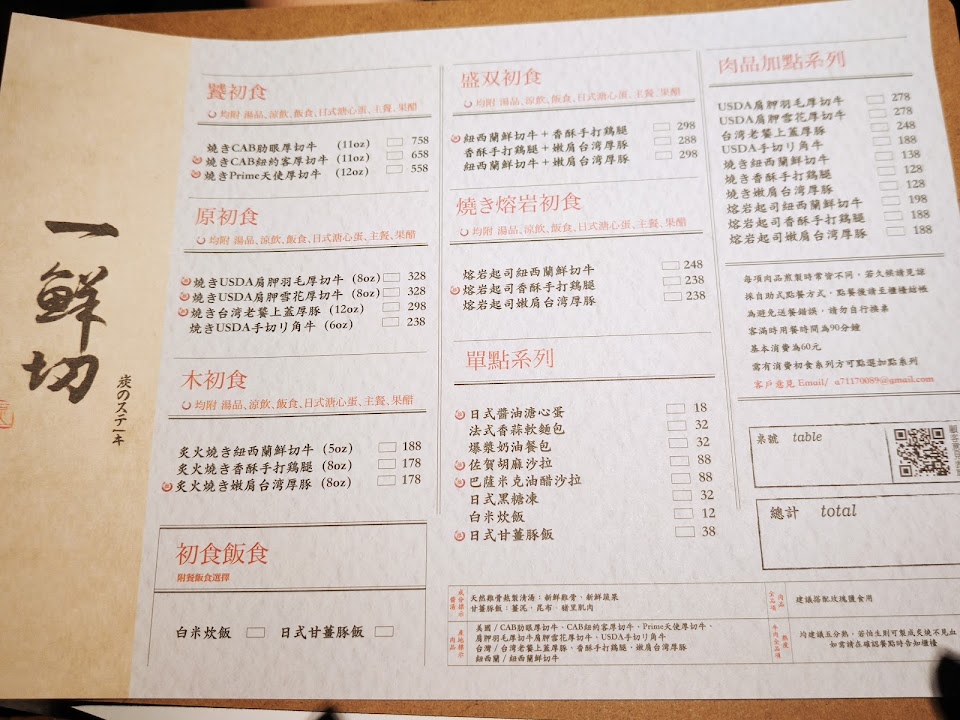 一鮮切
炭のステーキ
饕初食
均附 湯品、涼飲、飯食、日式溏心蛋、主餐、果醋
燒きCAB肋眼厚切牛 (11oz) 758
燒きCAB紐約客厚切牛 (11oz) 658
燒きPrime天使厚切牛 (12oz) 558
原初食
均附 湯品、涼飲、飯食、日式溏心蛋、主餐、果醋
燒きUSDA肩胛羽毛厚切牛 (8oz) 328
燒きUSDA肩胛雪花厚切牛 (8oz) 328
燒き台湾老饕上蓋厚豚 (12oz) 298
燒きUSDA手切り角牛 (6oz) 238
木初食
均附 湯品、涼飲、飯食、日式溏心蛋、主餐、果醋
炙火燒き紐西蘭鮮切牛 (5oz) 188
炙火燒き香酥手打鶏腿 (8oz) 178
炙火燒き嫩肩台湾厚豚 (8oz) 178
初食飯食
附餐飯食選擇
白米炊飯 日式甘薑豚飯
盛双初食
均附 湯品、涼飲、飯食、日式溏心蛋、主餐、果醋
紐西蘭鮮切牛+香酥手打鶏腿 298
香酥手打鶏腿+嫩肩台湾厚豚 288
紐西蘭鮮切牛+嫩肩台湾厚豚 298
燒き熔岩初食
均附 湯品、涼飲、飯食、日式溏心蛋、主餐、果醋
熔岩起司紐西蘭鮮切牛 248
熔岩起司香酥手打鶏腿 238
熔岩起司嫩肩台湾厚豚 238
單點系列
日式醬油溏心蛋 18
法式香蒜軟麵包 32
爆漿奶油餐包 32
佐賀胡麻沙拉 88
巴薩米克油醋沙拉 88
日式黑糖凍 32
白米炊飯 12
日式甘薑豚飯 38
肉品加點系列
USDA肩胛羽毛厚切牛 278
USDA肩胛雪花厚切牛 278
台湾老饕上蓋厚豚 248
USDA手切り角牛 188
燒き紐西蘭鮮切牛 138
燒き香酥手打鶏腿 128
燒き嫩肩台湾厚豚 128
熔岩起司紐西蘭鮮切牛 198
熔岩起司香酥手打鶏腿 188
熔岩起司嫩肩台湾厚豚 188
每項肉品煎製時常皆不同，若久候請見諒
採自助式點餐方式，點餐後請至櫃檯結帳
為避免送餐錯誤，請勿自行換桌
客滿時用餐時間為90分鐘
基本消費為60元
需有消費初食系列方可點選加點系列
客戶意見 Email/ a71170089@gmail.com
桌號 table
總計 total
成分標示
天然雞骨蔬製清湯：新鮮雞骨、新鮮蔬菜
甘薑豚飯：薑泥、昆布、豬里肌肉
產地標示 肉品
美國/CAB肋眼厚切牛、CAB紐約客厚切牛、Prime天使厚切牛、
肩胛羽毛厚切牛肩胛雪花厚切牛、USDA手切り角牛
台灣/台湾老饕上蓋厚豚、香酥手打鶏腿、嫩肩台湾厚豚
紐西蘭/紐西蘭鮮切牛
肉品 全品項
建議搭配玫瑰鹽食用
熟度 牛肉全品項
均建議五分熟，若怕生則可製成炙燒不見血
如需請在確認餐點時告知櫃檯